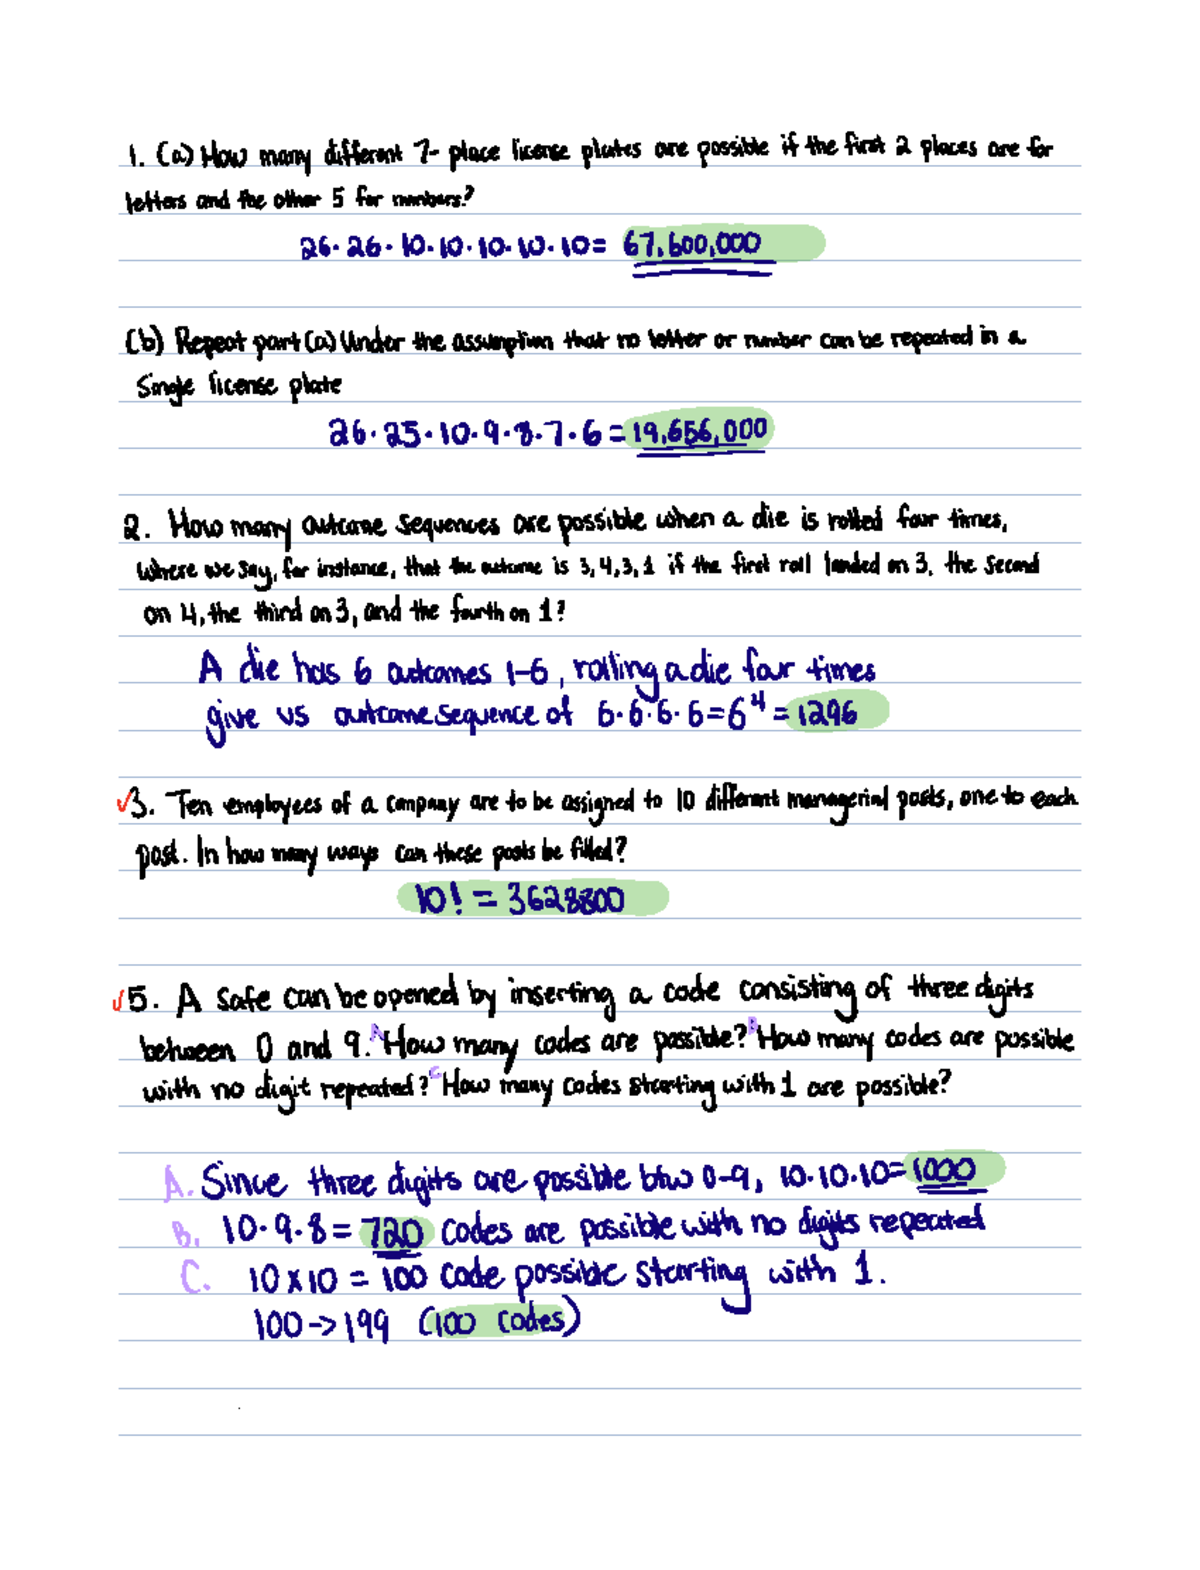 1. (a) How many different 7- place license plates are possible if the first 2 places are for
letters and the other 5 for numbers?
26· 26· 10·10·10·10·10= 67,600,000
(b) Repeat part (a) Under the assumption that no letter or number can be repeated in a
Single license plate
26·25·10·9·8·7·6 = 19,656,000
2. How many outcome sequences are possible when a die is rolled four times,
where we say, for instance, that the outcome is 3,4,3,1 if the first roll landed on 3, the second
on 4, the third on 3, and the fourth on 1?
A die has 6 outcomes 1-6, rolling a die four times
give us outcome sequence of 6·6·6·6=6⁴ = 1296
✓3. Ten employees of a company are to be assigned to 10 different managerial posts, one to each
post. In how many ways can these posts be filled?
10! = 3628800
✓5. A safe can be opened by inserting a code consisting of three digits
between 0 and 9. A How many codes are possible? B How many codes are possible
with no digit repeated? C How many codes starting with 1 are possible?
A. Since three digits are possible btw 0-9, 10·10·10=1000
B. 10·9·8 = 720 codes are possible with no digits repeated
C. 10x10 = 100 code possible starting with 1.
100->199 (100 codes)